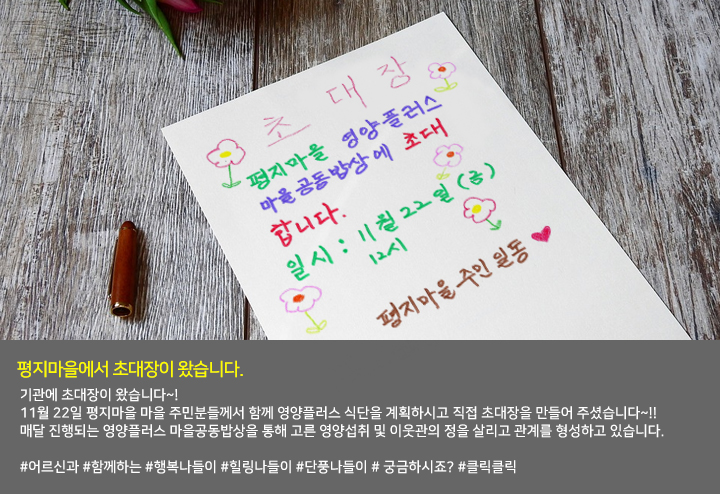 초대장
평지마을 영양플러스
마을공동밥상에 초대
합니다.
일시 : 11월 22일 (금)
12시
평지마을 주인 일동
평지마을에서 초대장이 왔습니다.
기관에 초대장이 왔습니다~!
11월 22일 평지마을 마을 주민분들께서 함께 영양플러스 식단을 계획하시고 직접 초대장을 만들어 주셨습니다~!!
매달 진행되는 영양플러스 마을공동밥상을 통해 고른 영양섭취 및 이웃관의 정을 살리고 관계를 형성하고 있습니다.
#어르신과 #함께하는 #행복나들이 #힐링나들이 #단풍나들이 # 궁금하시죠? #클릭클릭